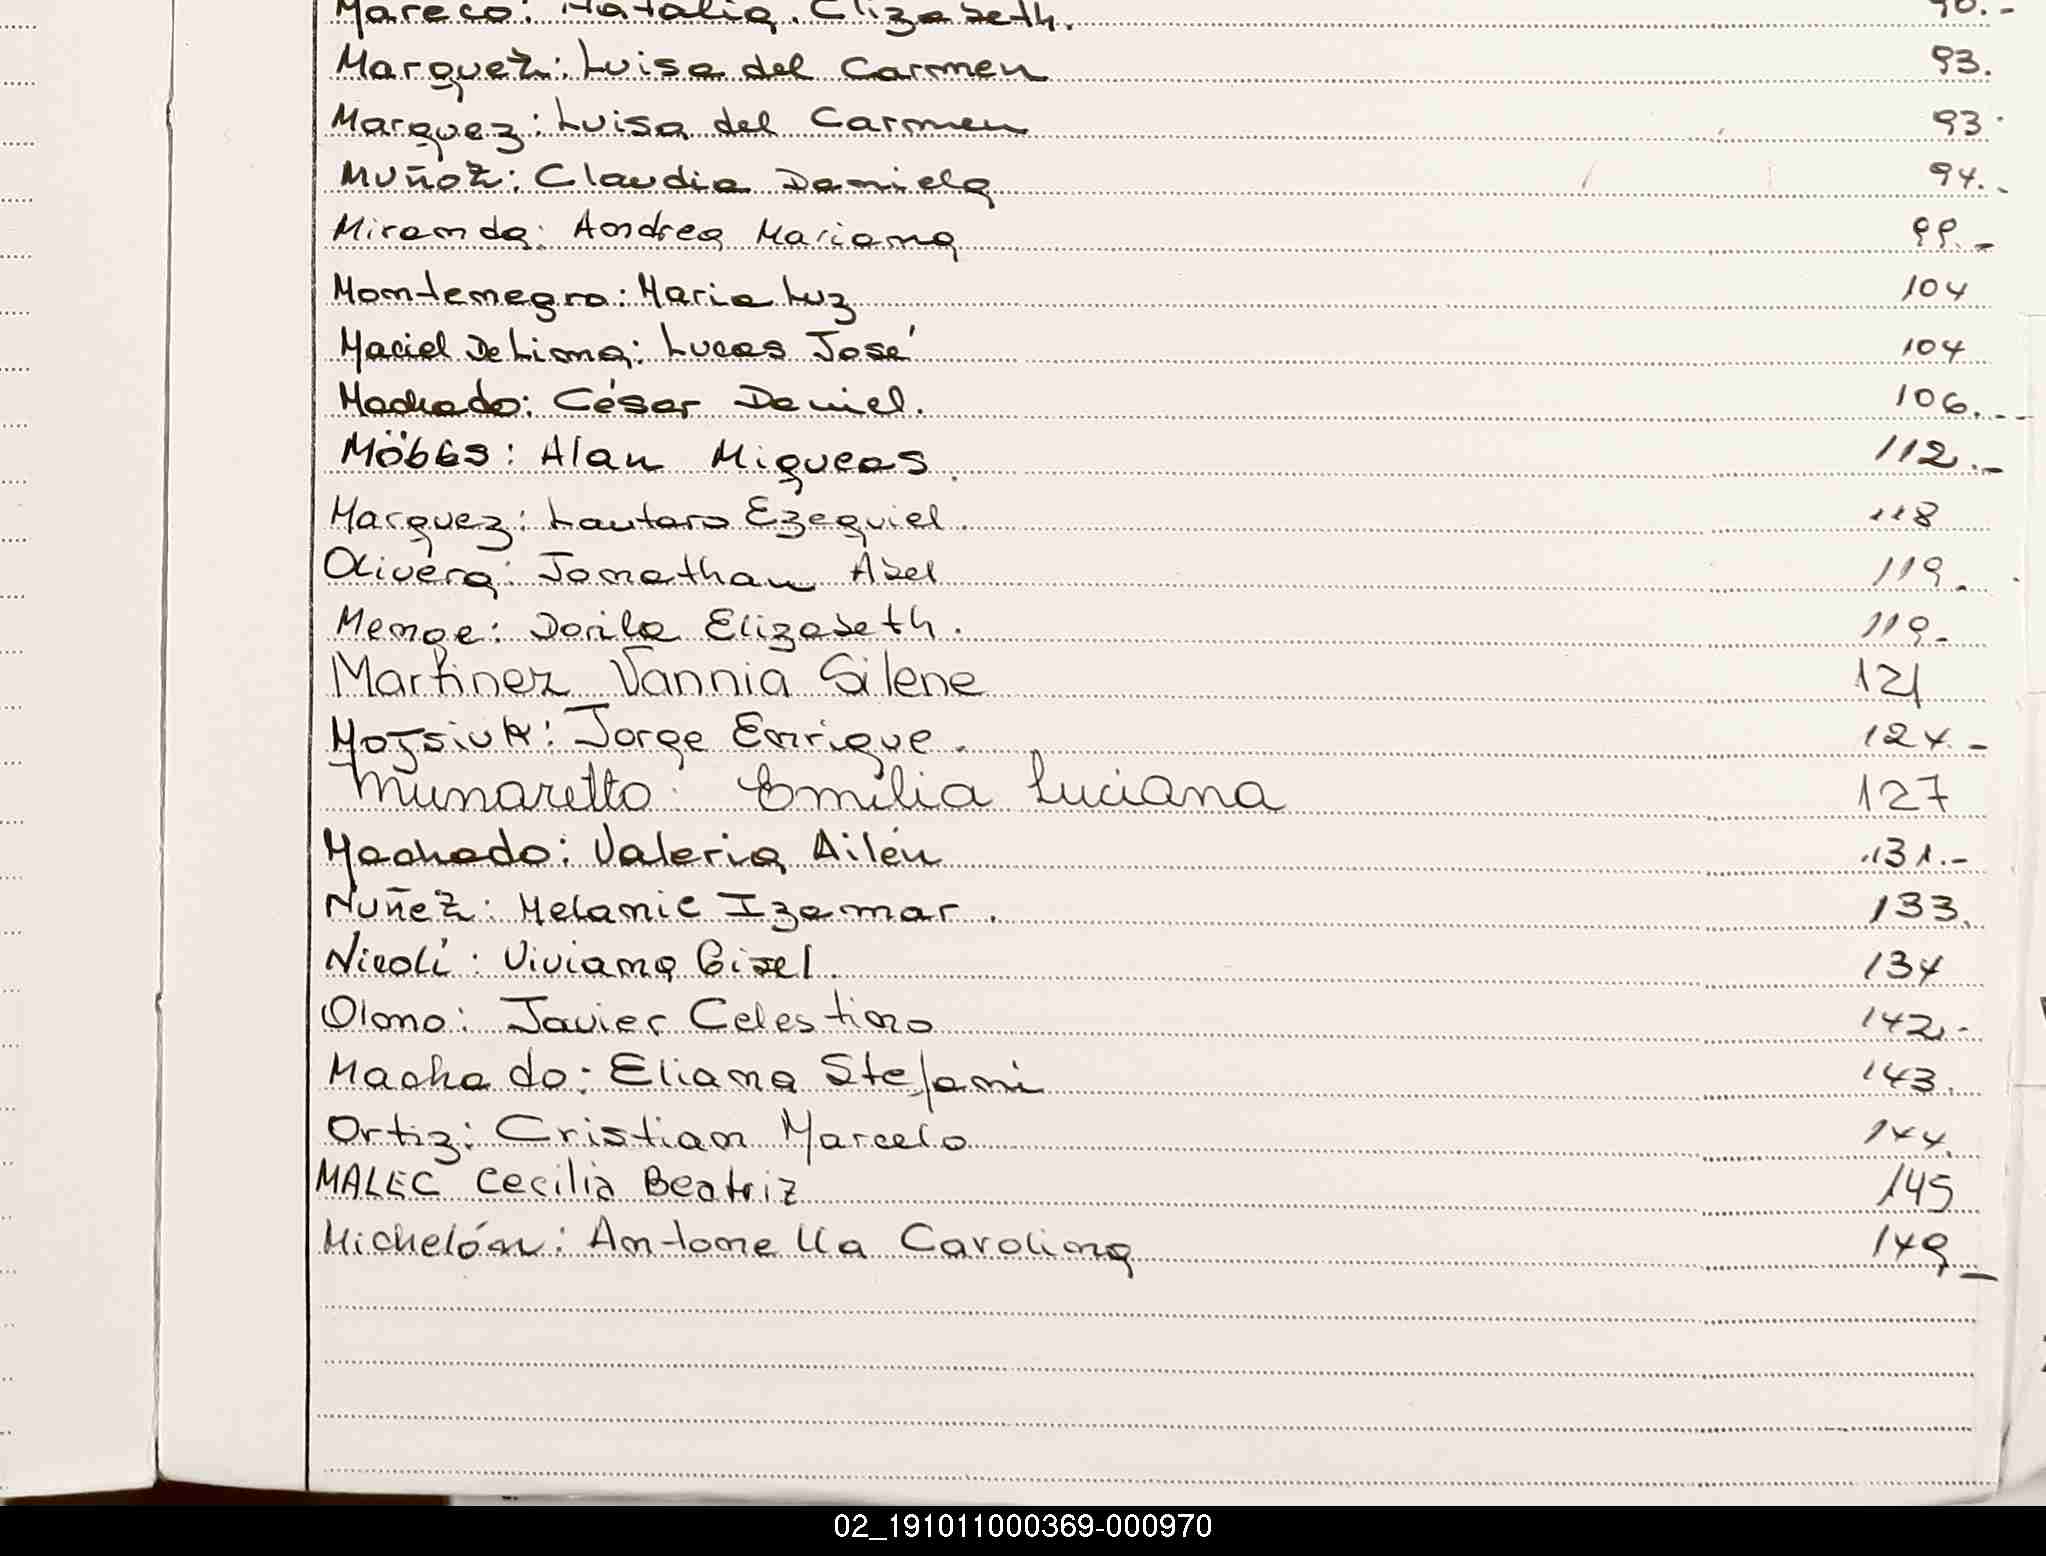 Mareco: Natalia. Elizabeth. 90.-
Marquez: Luisa del Carmen 93.
Marquez: Luisa del Carmen 93.
Muñoz: Claudia Daniela 94.-
Miranda: Andrea Mariana 99.-
Montenegro: Maria Luz 104
Maciel De Lima: Lucas José 104
Machado: César Daniel. 106.-
Möbbs: Alan Miqueas. 112.-
Marquez: Lautaro Ezequiel. 118
Olivera: Jonathan Abel 119.
Menge: Dorila Elizabeth. 119-
Martinez Vannia Silene 121
Mojsiuk: Jorge Enrique. 124.-
Munaretto: Emilia Luciana 127
Machado: Valeria Ailén 131.-
Nuñez: Melanie Izamar. 133.
Nicoli: Viviana Gisel. 134
Olmo: Javier Celestino 142.-
Machado: Eliana Stefani 143.
Ortiz: Cristian Marcelo 144.
MALEC Cecilia Beatriz 145
Michelón: Antonella Carolina 149_
02_191011000369-000970